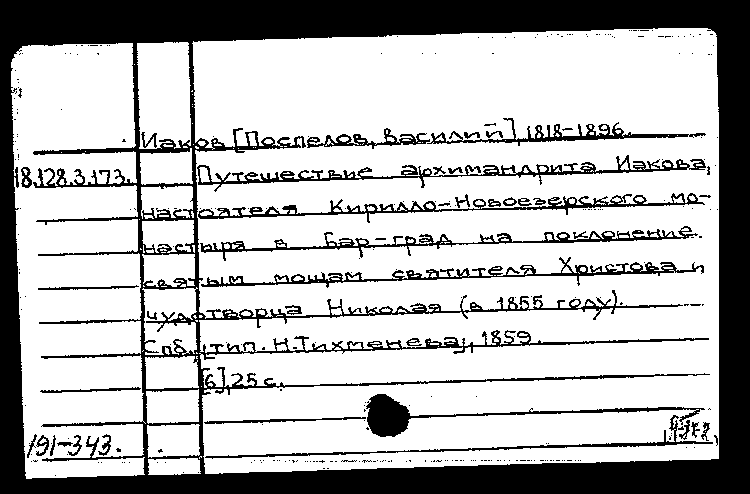 Иаков [Поспелов, Василий], 1818-1896.
18.128.3.173. Путешествие архимандрита Иакова,
настоятеля Кирилло-Новоезерского мо-
настыря в Бар-град на поклонение
святым мощам святителя Христова и
чудотворца Николая (в 1855 году).
Спб., тип. Н. Тихменева, 1859.
[6], 25 с.
191-343.